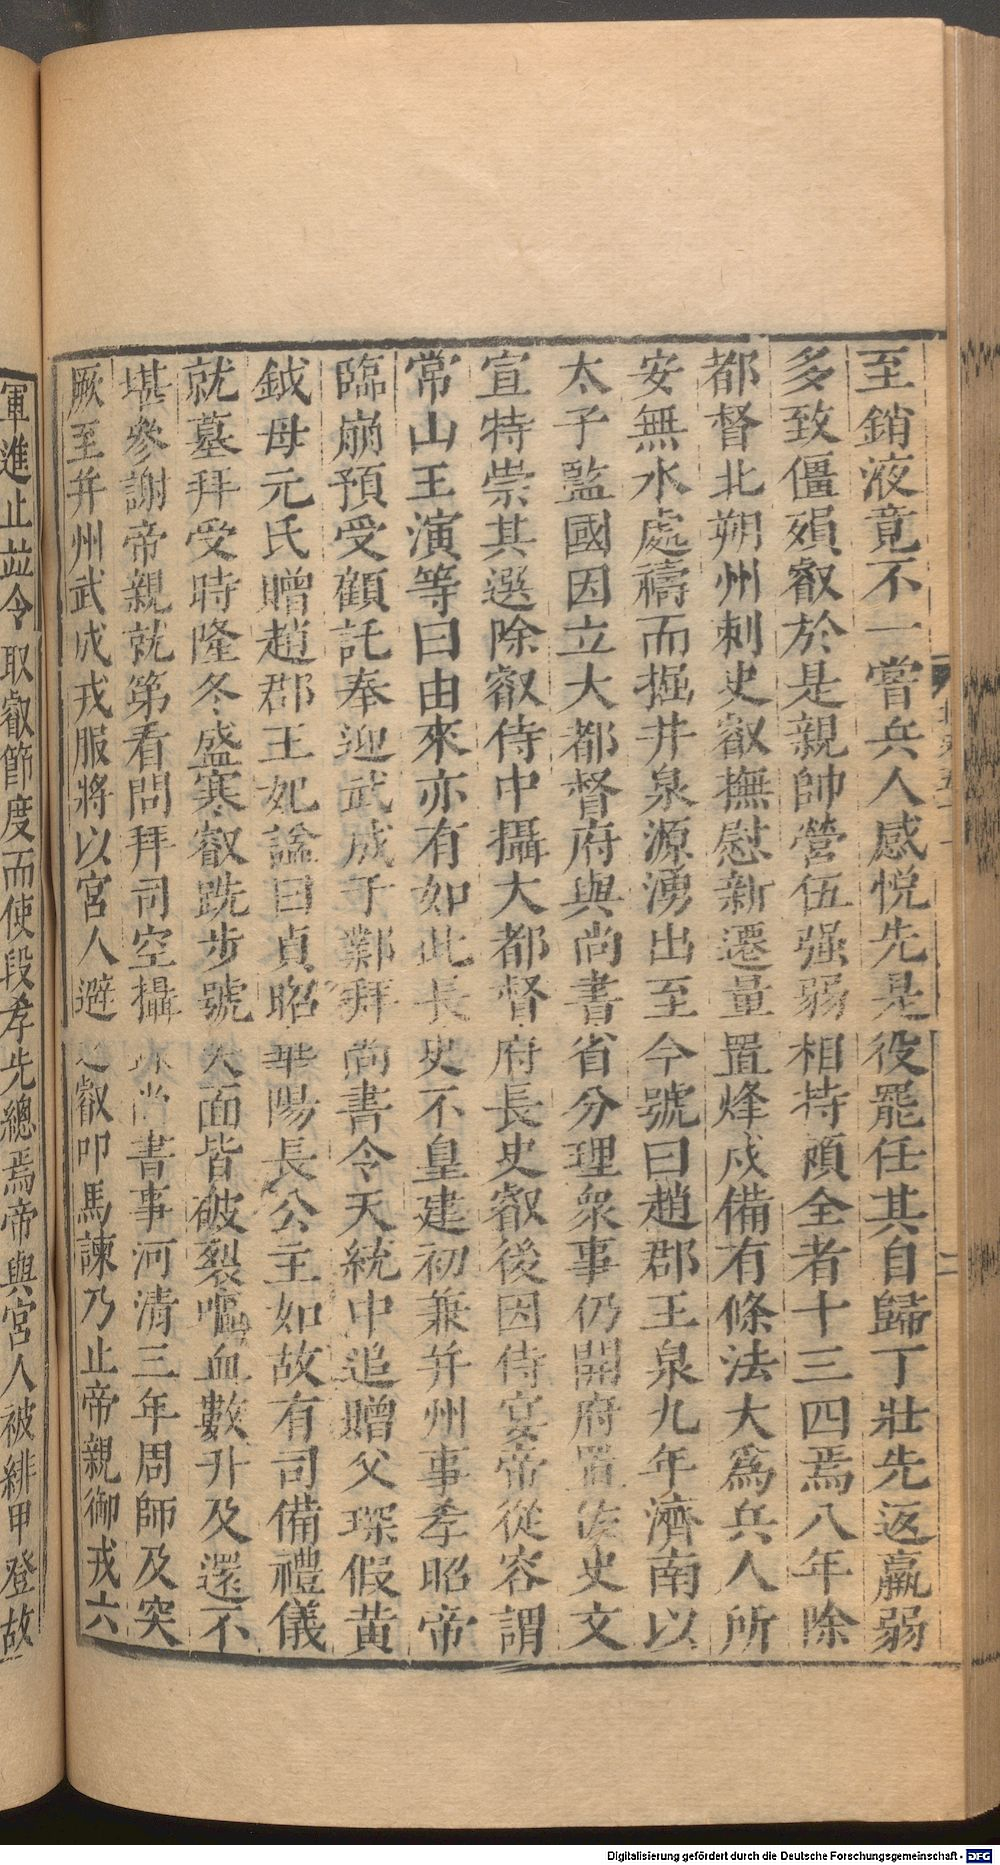 至銷液竟不一嘗兵人感悅先是役罷任其自歸丁壯先返羸弱
多致僵殞叡於是親帥營伍强弱相持頼全者十三四焉八年除
都督北朔州刺史叡撫慰新遷量置烽戍備有條法大爲兵人所
安無水處禱而掘井泉源湧出至今號曰趙郡王泉九年濟南以
太子監國因立大都督府與尚書省分理衆事仍開府置佐史文
宣特崇其選除叡侍中攝大都督府長史叡後因侍宴帝從容謂
常山王演等曰由來亦有如此長史不皇建初兼并州事孝昭帝
臨崩預受顧託奉迎武成于鄴拜尚書令天統中追贈父琛假黄
鉞母元氏贈趙郡王妃諡曰貞昭華陽長公主如故有司備禮儀
就墓拜受時隆冬盛寒叡跣步號哭面皆破裂嘔血數升及還不
堪參謝帝親就第看問拜司空攝尚書事河清三年周師及突
厥至并州武成戎服將以宮人避之叡叩馬諫乃止帝親御戎六
軍進止並令取叡節度而使段孝先總焉帝與宮人被緋甲登故
二
Digitalisierung gefördert durch die Deutsche Forschungsgemeinschaft - DFG